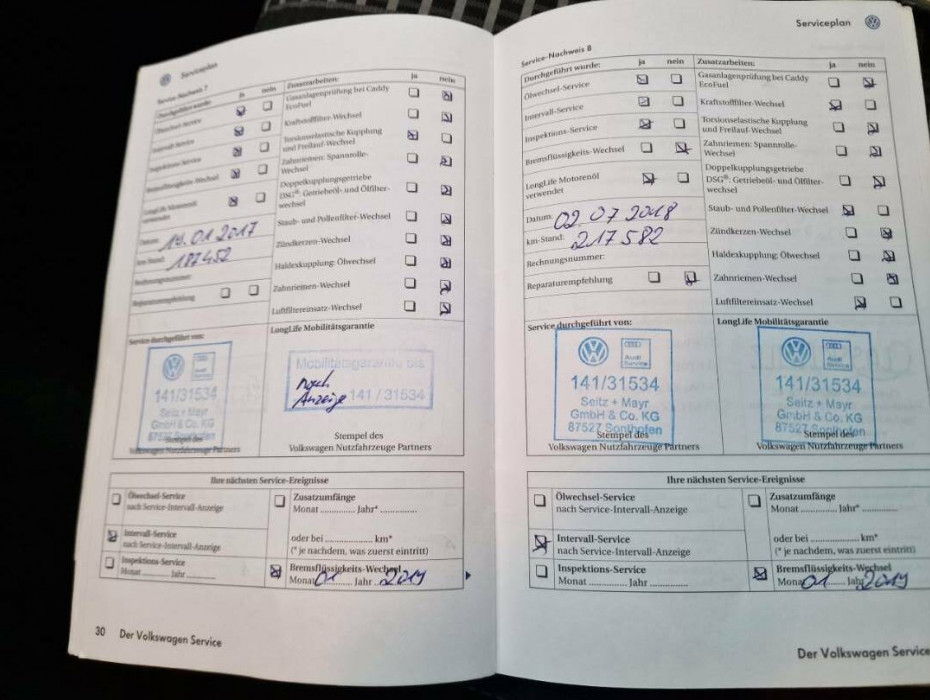 Serviceplan
Service-Nachweis 7
Durchgeführt wurde: ja nein
Ölwechsel-Service
Intervall-Service
Inspektions-Service
Bremsflüssigkeits-Wechsel
LongLife Motorenöl
verwendet
Datum: 19.01.2017
km-Stand: 187452
Rechnungsnummer:
Reparaturempfehlung
Zusatzarbeiten: ja nein
Gasanlagenprüfung bei Caddy
EcoFuel
Kraftstofffilter-Wechsel
Torsionselastische Kupplung
und Freilauf-Wechsel
Zahnriemen: Spannrolle-
Wechsel
Doppelkupplungsgetriebe
DSG®: Getriebeöl- und Ölfilter-
wechsel
Staub- und Pollenfilter-Wechsel
Zündkerzen-Wechsel
Haldexkupplung: Ölwechsel
Zahnriemen-Wechsel
Luftfiltereinsatz-Wechsel
Service durchgeführt von:
Audi
Service
141/31534
Seitz + Mayr
GmbH & Co. KG
87527 Sonthofen
Stempel des
Volkswagen Nutzfahrzeuge Partners
LongLife Mobilitätsgarantie
Mobilitätsgarantie bis
nach
Anzeige 141 / 31534
Stempel des
Volkswagen Nutzfahrzeuge Partners
Ihre nächsten Service-Ereignisse
Ölwechsel-Service
nach Service-Intervall-Anzeige
Intervall-Service
nach Service-Intervall-Anzeige
Inspektions-Service
Monat ............ Jahr ............
Zusatzumfänge
Monat ............ Jahr* ............
oder bei ............ km*
(* je nachdem, was zuerst eintritt)
Bremsflüssigkeits-Wechsel
Monat 01 Jahr 2019
30 Der Volkswagen Service
Serviceplan
Service-Nachweis 8
Durchgeführt wurde: ja nein
Ölwechsel-Service
Intervall-Service
Inspektions-Service
Bremsflüssigkeits-Wechsel
LongLife Motorenöl
verwendet
Datum: 02.07.2018
km-Stand: 217582
Rechnungsnummer:
Reparaturempfehlung
Zusatzarbeiten: ja nein
Gasanlagenprüfung bei Caddy
EcoFuel
Kraftstofffilter-Wechsel
Torsionselastische Kupplung
und Freilauf-Wechsel
Zahnriemen: Spannrolle-
Wechsel
Doppelkupplungsgetriebe
DSG®: Getriebeöl- und Ölfilter-
wechsel
Staub- und Pollenfilter-Wechsel
Zündkerzen-Wechsel
Haldexkupplung: Ölwechsel
Zahnriemen-Wechsel
Luftfiltereinsatz-Wechsel
Service durchgeführt von:
Audi
Service
141/31534
Seitz + Mayr
GmbH & Co. KG
87527 Sonthofen
Stempel des
Volkswagen Nutzfahrzeuge Partners
LongLife Mobilitätsgarantie
Audi
Service
141/31534
Seitz + Mayr
GmbH & Co. KG
87527 Sonthofen
Stempel des
Volkswagen Nutzfahrzeuge Partners
Ihre nächsten Service-Ereignisse
Ölwechsel-Service
nach Service-Intervall-Anzeige
Intervall-Service
nach Service-Intervall-Anzeige
Inspektions-Service
Monat ............ Jahr ............
Zusatzumfänge
Monat ............ Jahr* ............
oder bei ............ km*
(* je nachdem, was zuerst eintritt)
Bremsflüssigkeits-Wechsel
Monat 01 Jahr 2019
Der Volkswagen Service